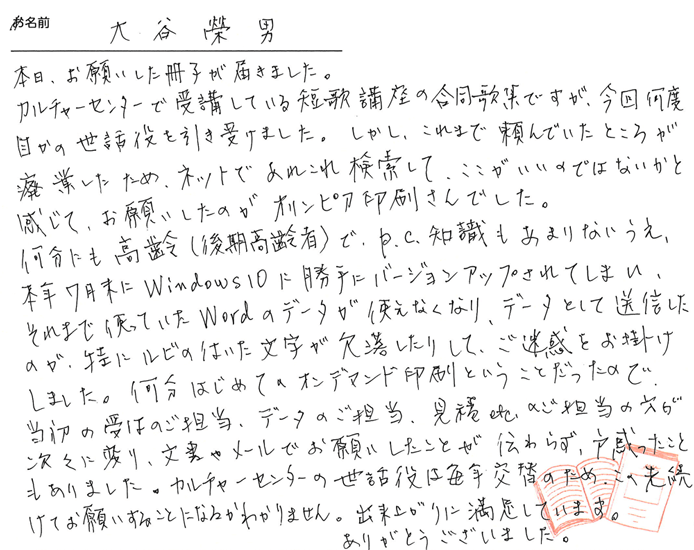 お名前 大谷榮男
本日、お願いした冊子が届きました。
カルチャーセンターで受講している短歌講座の合同歌集ですが、今回何度
目かの世話役を引き受けました。しかし、これまで頼んでいたところが
廃業したため、ネットであれこれ検索して、ここがいいのではないかと
感じて、お願いしたのがオリンピア印刷さんでした。
何分にも高齢(後期高齢者)で、p.c.知識もあまりないうえ、
本年7月末にWindows10に勝手にバージョンアップされてしまい、
それまで使っていたWordのデータが使えなくなり、データとして送信した
のが、特にルビの付いた文字が欠落したりして、ご迷惑をお掛け
しました。何分はじめてのオンデマンド印刷ということだったので、
当初の受付のご担当、データのご担当、見積etc.のご担当の方が
次々に変り、文書やメールでお願いしたことが伝わらず、戸惑ったこと
もありました。カルチャーセンターの世話役は毎年交替のため、この先続
けてお願いすることになるかわかりません。出来上がりに満足しています。
ありがとうございました。